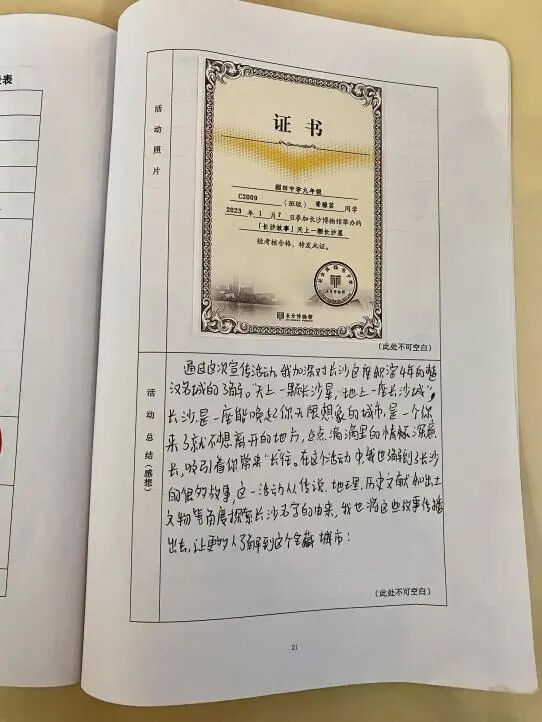 表
活动照片
证书
稻田中学九年级
C2009 (班级) 同学
2023 年 1 月 7 日参加长沙博物馆举办的
「长沙故事」天上一颗长沙星
经考核合格,特发此证。
长沙博物馆
(此处不可空白)
活动总结(感想)
通过这次宣传活动,我加深对长沙这座
汉名城的了解。"天上一颗长沙星,地上一座长沙城",
长沙是一座能唤起你无限想象的城市,是一个你
来了就不想离开的地方,点点滴滴里的情深意
长,吸引着你常来"长往。在这个活动中,我也了解到了长沙
的很多故事,这一活动从传说、地理、历史文献和出土
文物等角度探索长沙名字的由来,我也将这些故事传播
出去,让更多人了解到这个宝藏城市!
(此处不可空白)
21